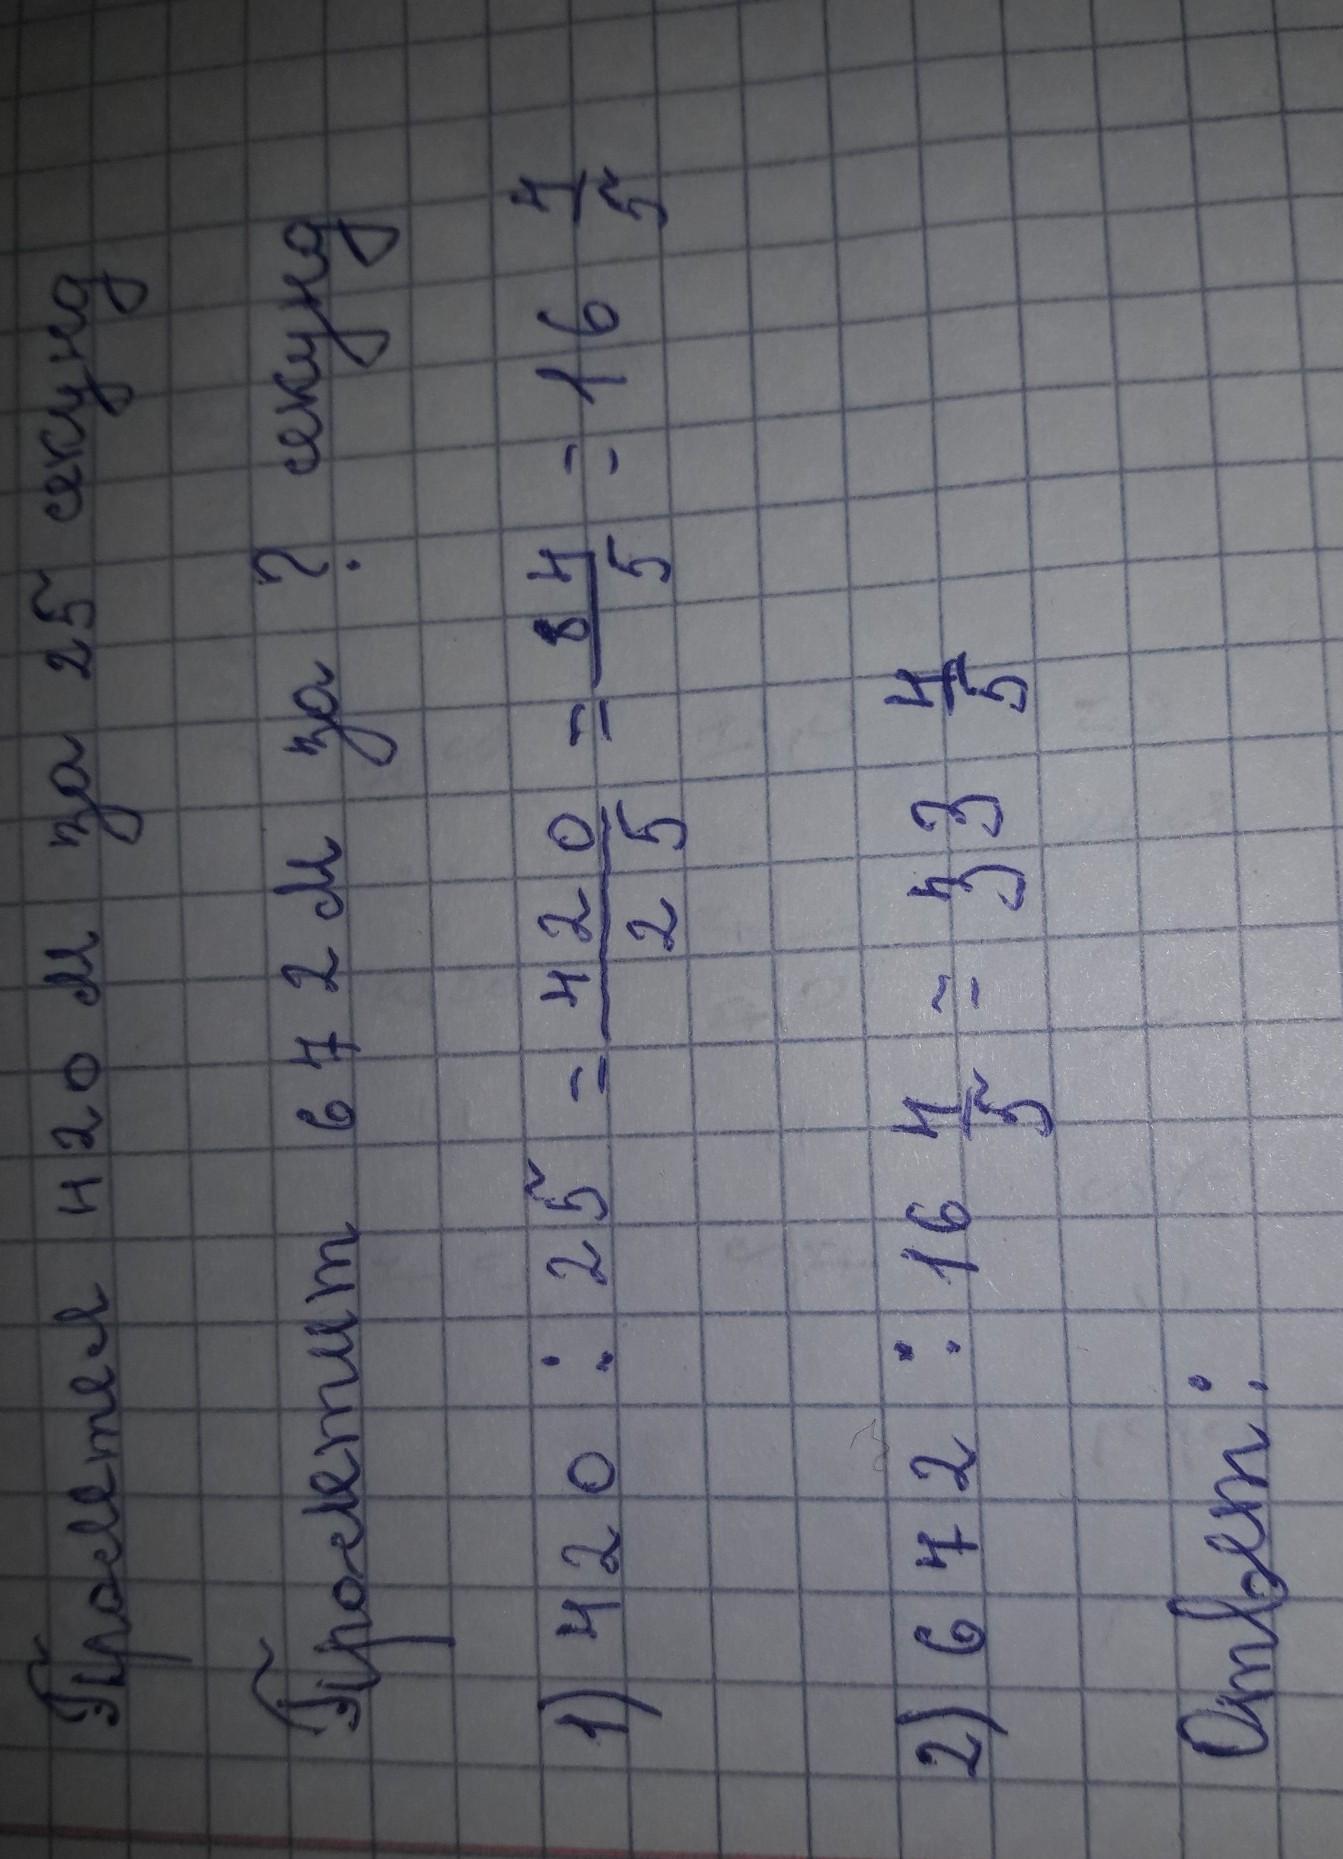 Пролетел 420 м за 25 секунд
Пролетит 672 м за ? секунд
1) 420 : 25 = 420/25 = 84/5 = 16 4/5
2) 672 : 16 4/5 = 33 4/5
Ответ: